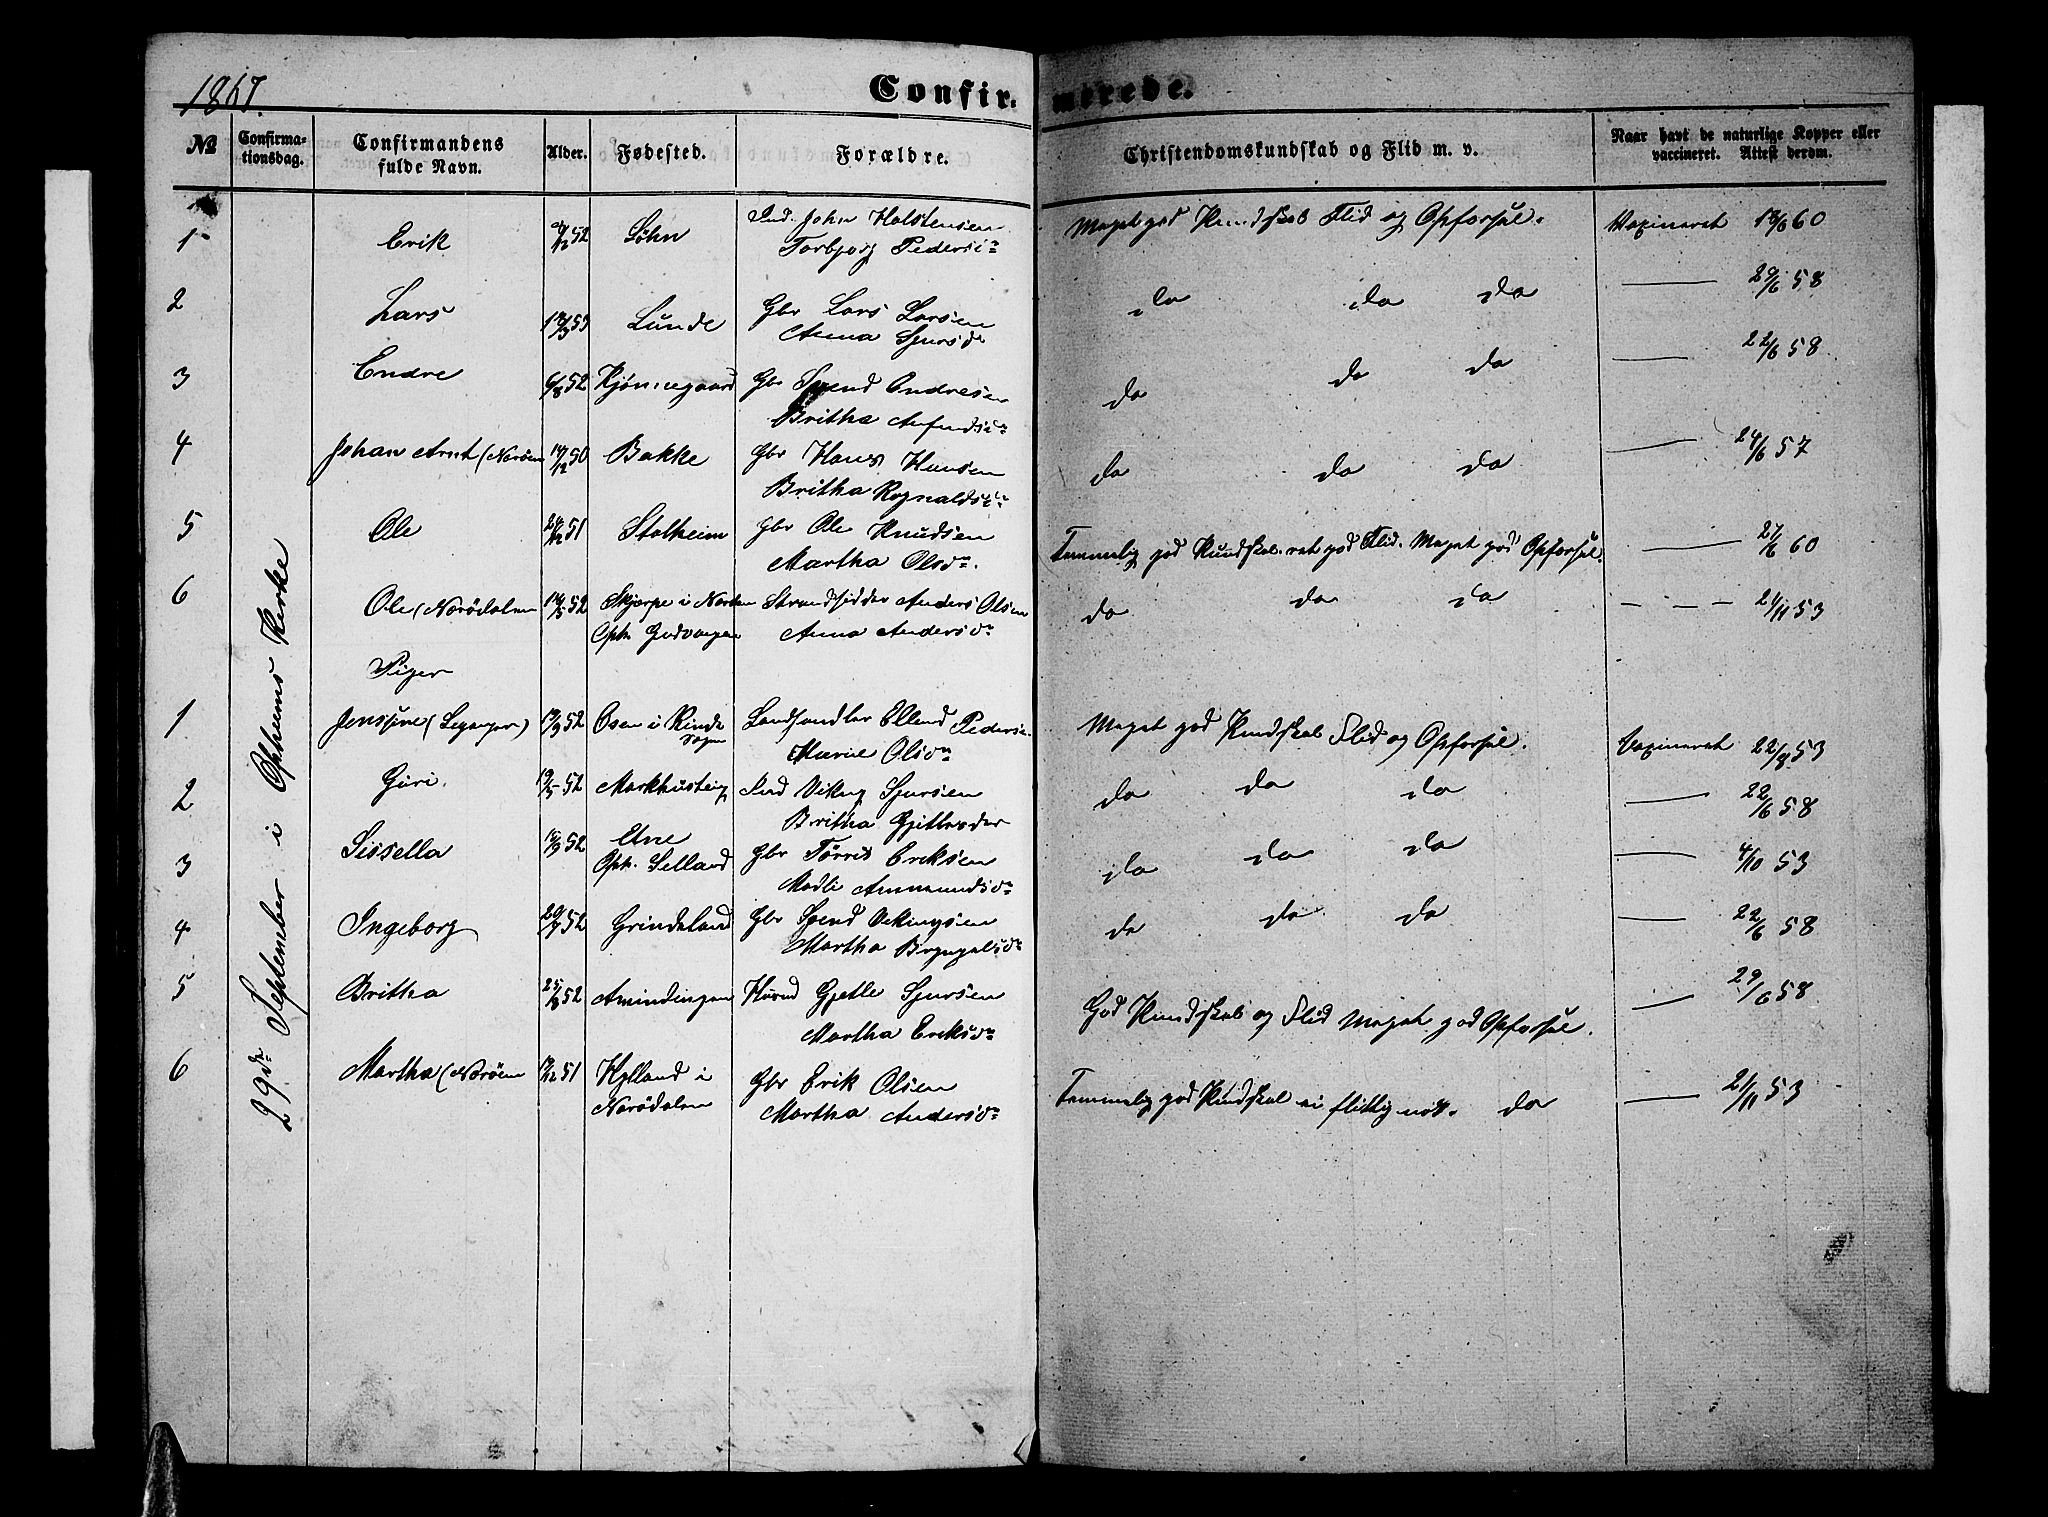 1867.
Confir-
merede.
No
Confirma-
tionsdag.
Confirmandens
fulde Navn.
Alder.
Fødested.
Forældre.
Christendomskundskab og Flid m. v.
Naar havt de naturlige Kopper eller
vaccineret. Attest derom.
29de September i Opheims Kirke
1 Erik 52 Löhn Ind. John Holstensen
Torbjorg Pedersd
Meget god Kundskab Flid og Opforsel. Vaxineret 18/6 60
2 Lars 18/3 53 Lunde Gbr Lars Larsen
Anna Sjursd
do do do — 29/6 58
3 Endre 6/8 52 Kjønnegaard Gbr Svend Endresen
Britha Anfindsd
do do do — 22/6 58
4 Johan Arnt (Noröen 14/12 50 Bakke Gbr Hans Hansen
Britha Rognaldsd
do do do — 24/6 57
5 Ole 24/12 51 Stalheim Gbr Ole Knudsen
Martha Olsdn.
Temmelig god Kundskab. ret god Flid. Meget god Opforsel. — 27/6 60
6 Ole (Norödalen 14/5 52 Skjerpe i Strandsidder Anders Olsen
Oph. Gudvangen Anna Andersdn
do do do — — — 24/11 53
Piger
1 Jensine (Leganger) 19/9 52 Osen i Rinde Landhandler Ellend Peders
Sogn Marie Olsdn
Meget god Kundskab Flid og Opforsel. Vaxineret 22/8 53
2 Guri. 19/5 52 Markhusteig Ind Viking Sjursen
Britha Gjetlesder
do do do — 22/6 58
3 Sissella 18/9 52 Etne Gbr Torris Eriksen
Oph. Selland Madli Ammundsdn
do do do — 4/10 53
4 Ingeborg 20/7 52 Grindeland Gbr Svend Vikingsen
Martha Bryngelsdn
do do do — 22/6 58
5 Britha 25/8 52 Amindingen Huusd Gjetle Sjursen
Martha Eriksdn
God Kundskab og Flid Meget god Opforsel. — 29/6 58
6 Martha (Noröen 19/12 51 Hylland i Gbr Erik Olsen
Norödalen Martha Andersdn
Temmelig god Kundskab ei flittig nok. do — 21/11 53